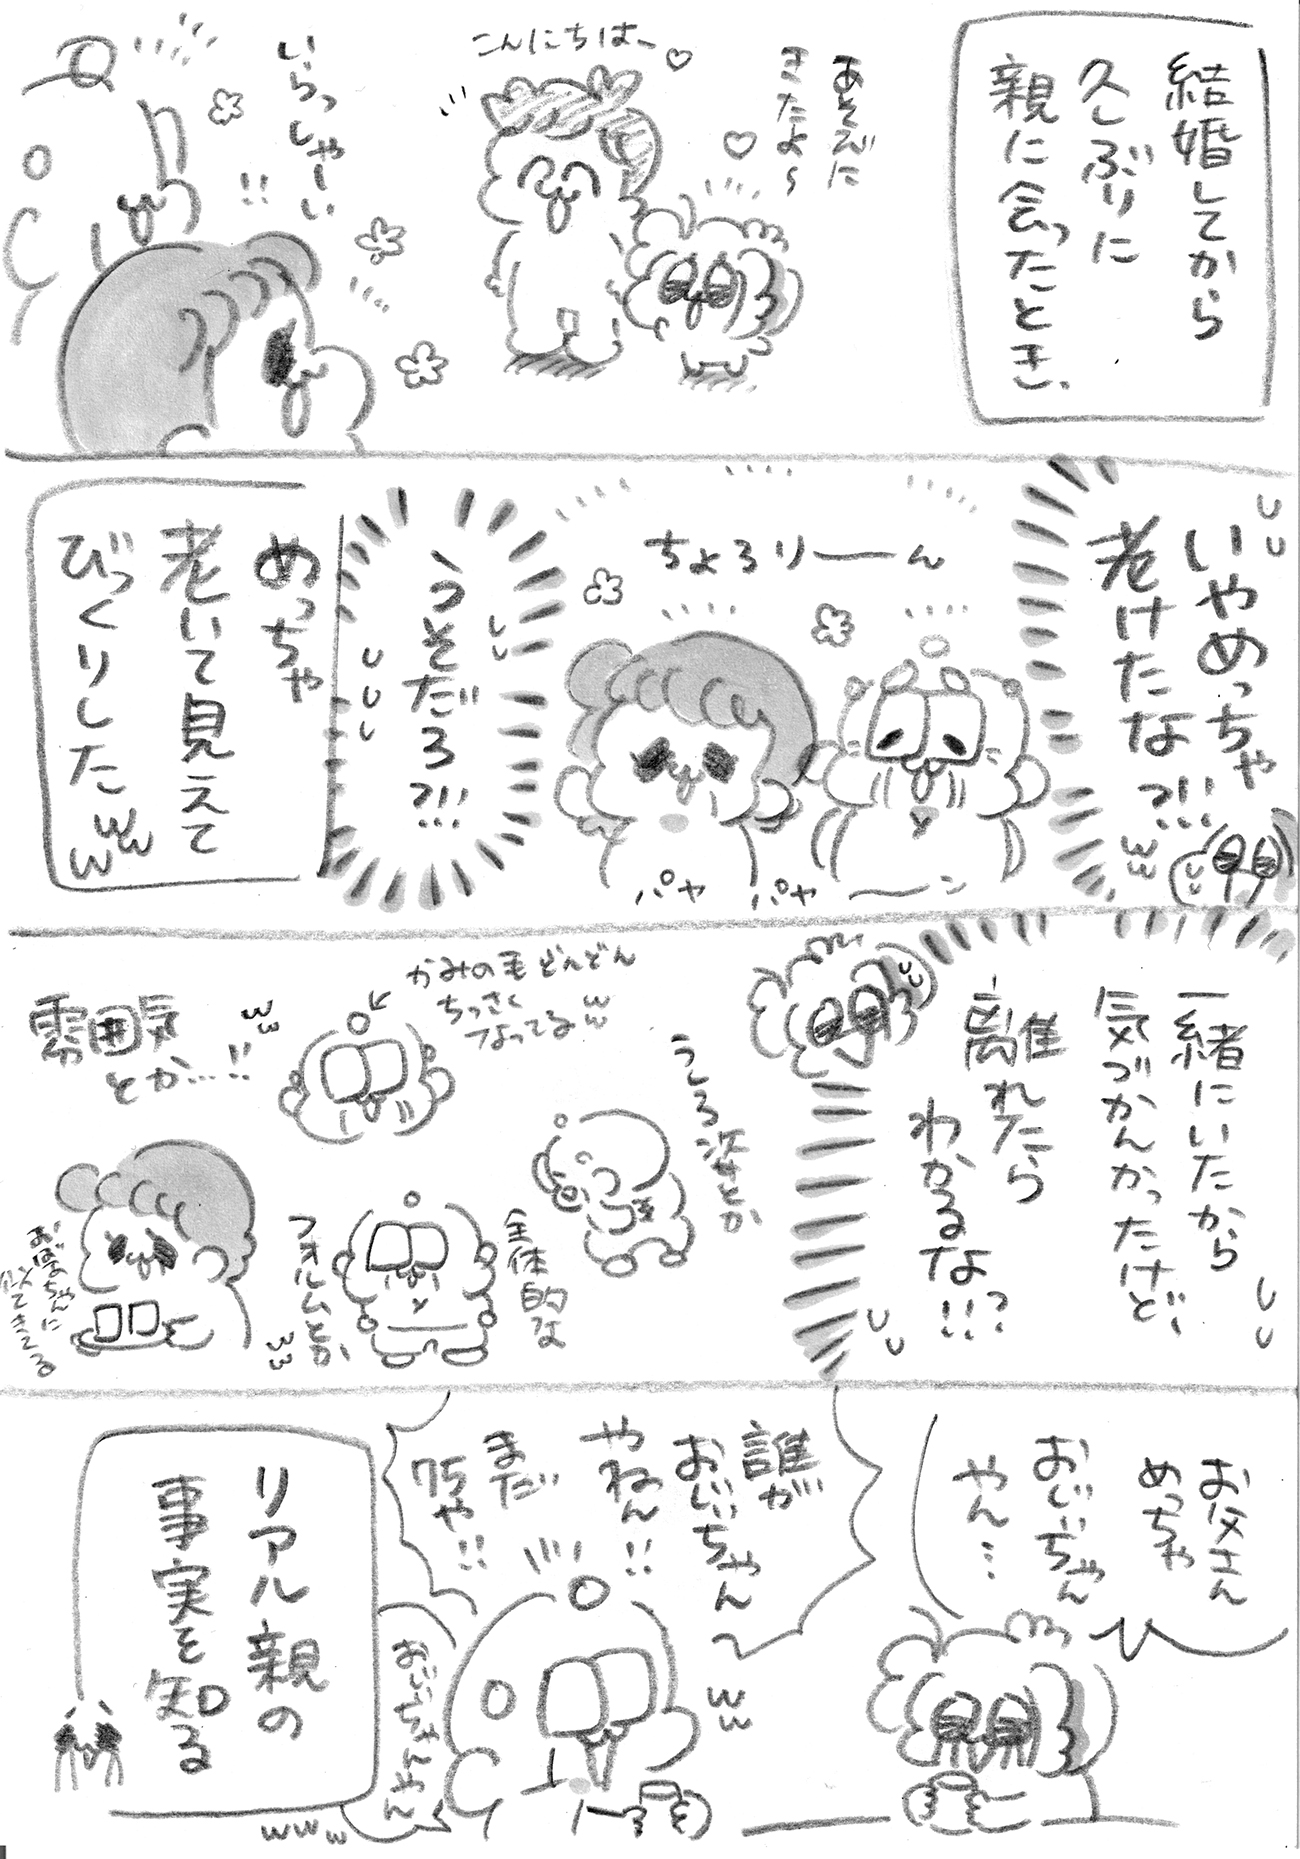 結婚してから
久しぶりに
親に会ったとき、
あそびに
きたよ〜
こんにちは〜
いらっしゃーい
!!
いやめっちゃ
老けたな?!!
ww
ちょろりーーん
パヤ パヤ ーーン
うそだろ?!!
めっちゃ
老いて見えて
びっくりした
www
一緒にいたから
気づかんかったけど、
離れたら
わかるな!!?
うしろ姿とか
かみの毛どんどん
ちっさく
なってるww
全体的な
フォルムとか
ww
雰囲気
とか…!!
ww
おばあちゃんに
お父さん
めっちゃ
おじいちゃん
やん…
誰が
おじいちゃん
やねん!!
まだ
75や!!
ww
おじいちゃんやん
リアル親の
事実を知る
www